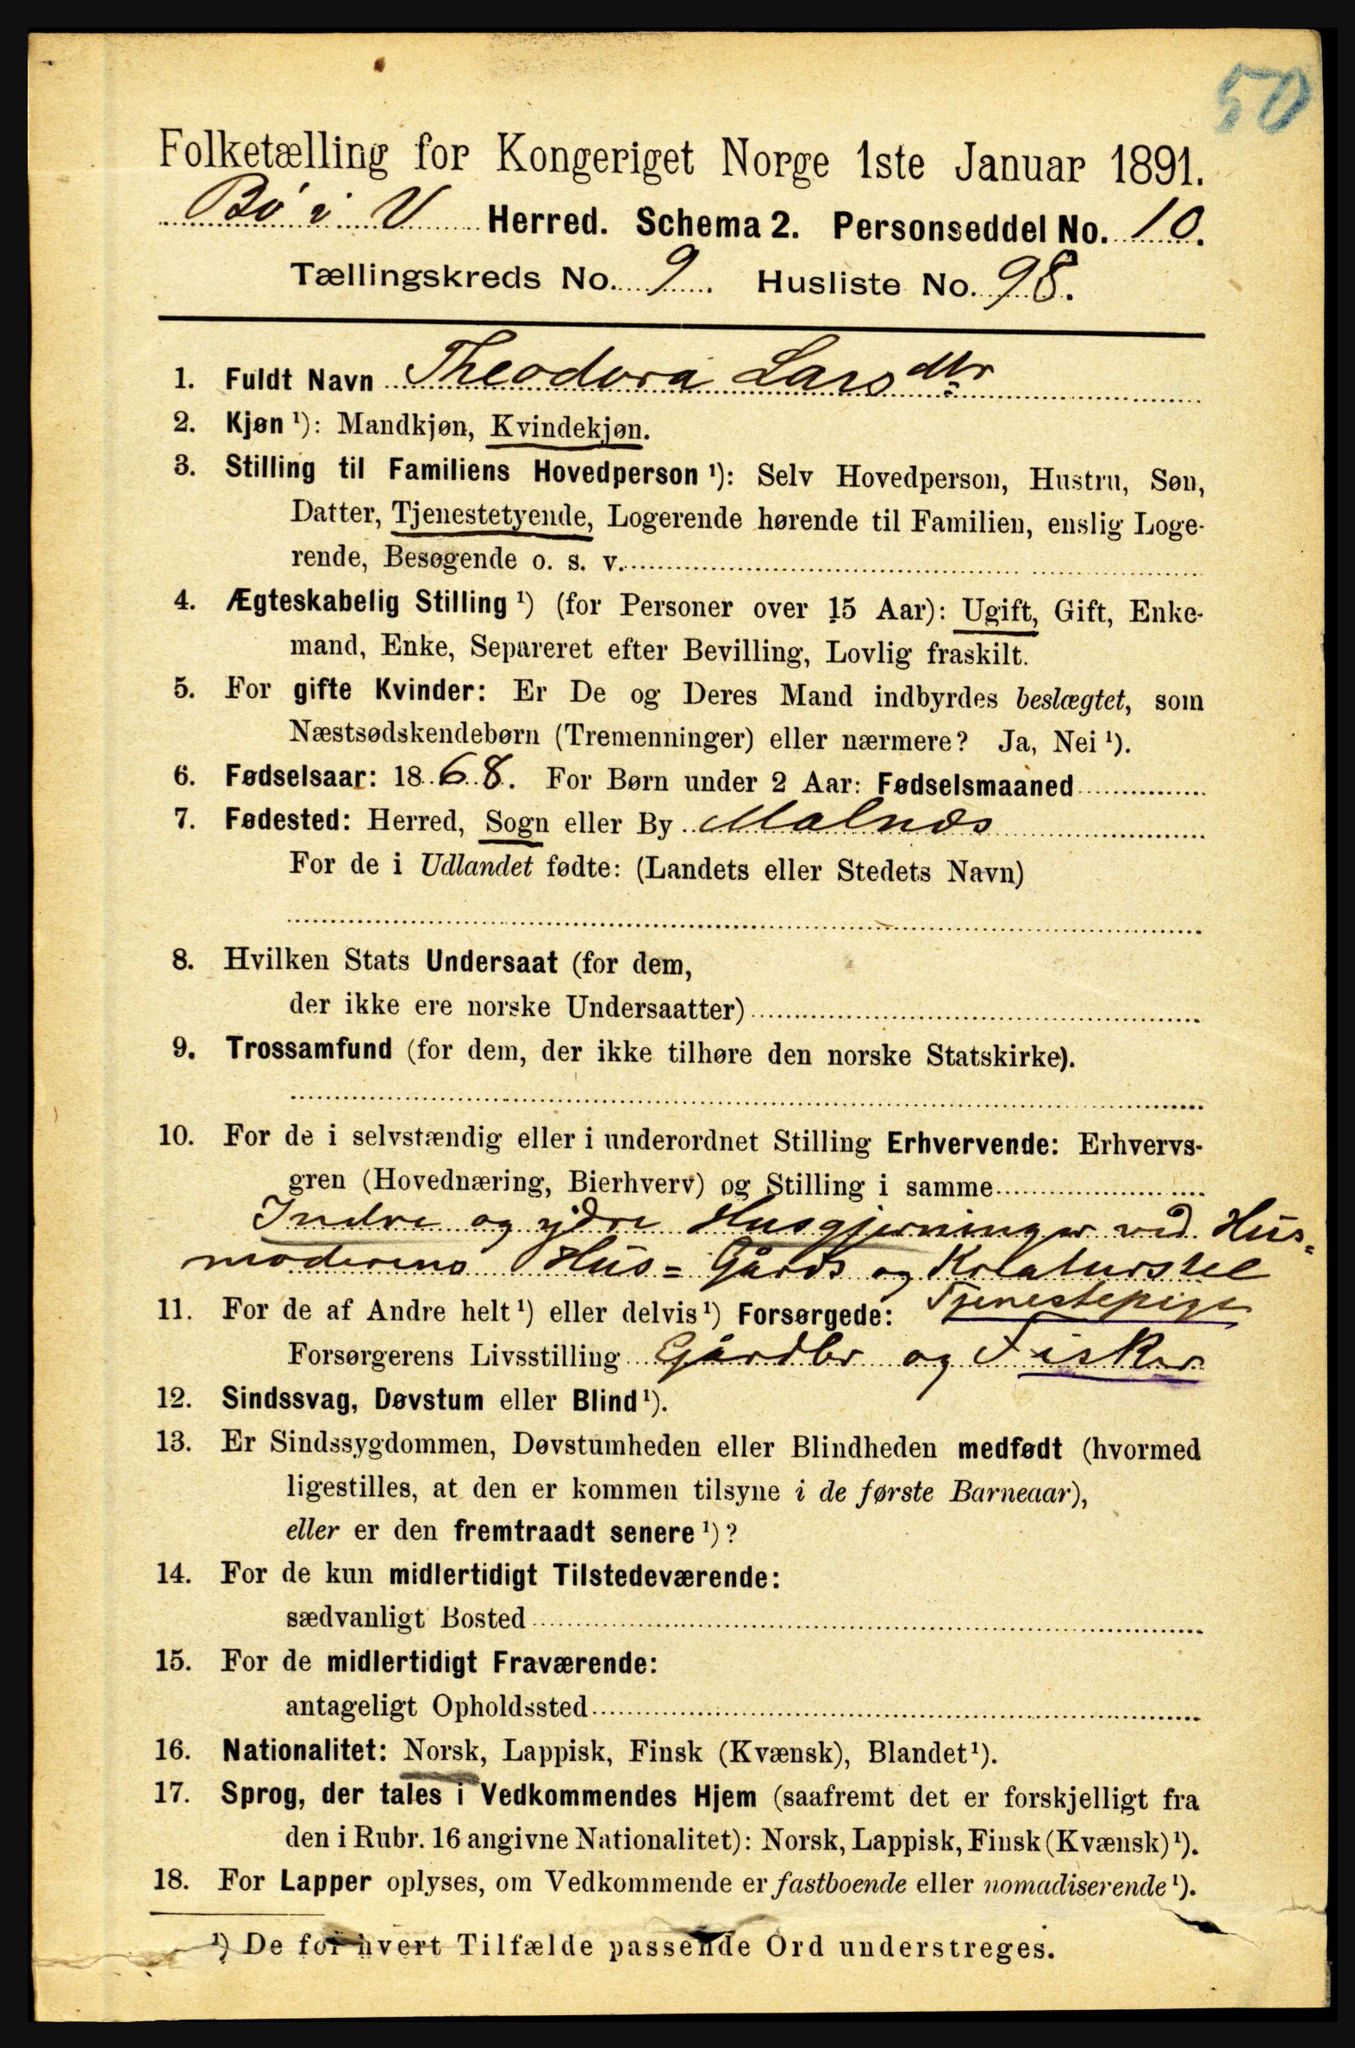 50
Folketælling for Kongeriget Norge 1ste Januar 1891.
Bø i V Herred. Schema 2. Personseddel No. 10.
Tællingskreds No. 9. Husliste No. 98.
1. Fuldt Navn Theodora Larsdtr
2. Kjøn ¹): Mandkjøn, Kvindekjøn.
3. Stilling til Familiens Hovedperson ¹): Selv Hovedperson, Hustru, Søn,
Datter, Tjenestetyende, Logerende hørende til Familien, enslig Loge-
rende, Besøgende o. s. v.
4. Ægteskabelig Stilling ¹) (for Personer over 15 Aar): Ugift, Gift, Enke-
mand, Enke, Separeret efter Bevilling, Lovlig fraskilt.
5. For gifte Kvinder: Er De og Deres Mand indbyrdes beslægtet, som
Næstsødskendebørn (Tremenninger) eller nærmere? Ja, Nei ¹).
6. Fødselsaar: 1868. For Børn under 2 Aar: Fødselsmaaned
7. Fødested: Herred, Sogn eller By Malnæs
For de i Udlandet fødte: (Landets eller Stedets Navn)
8. Hvilken Stats Undersaat (for dem,
der ikke ere norske Undersaatter)
9. Trossamfund (for dem, der ikke tilhøre den norske Statskirke).
10. For de i selvstændig eller i underordnet Stilling Erhvervende: Erhvervs-
gren (Hovednæring, Bierhverv) og Stilling i samme
Indre og ydre Husgjerninger ved Hus-
moderens Hus- Gårds og Kreaturstel
Tjenestepige
11. For de af Andre helt ¹) eller delvis ¹) Forsørgede:
Forsørgerens Livsstilling Gårdbr og Fisker
12. Sindssvag, Døvstum eller Blind ¹).
13. Er Sindssygdommen, Døvstumheden eller Blindheden medfødt (hvormed
ligestilles, at den er kommen tilsyne i de første Barneaar),
eller er den fremtraadt senere ¹)?
14. For de kun midlertidigt Tilstedeværende:
sædvanligt Bosted
15. For de midlertidigt Fraværende:
antageligt Opholdssted
16. Nationalitet: Norsk, Lappisk, Finsk (Kvænsk), Blandet ¹).
17. Sprog, der tales i Vedkommendes Hjem (saafremt det er forskjelligt fra
den i Rubr. 16 angivne Nationalitet): Norsk, Lappisk, Finsk (Kvænsk) ¹).
18. For Lapper oplyses, om Vedkommende er fastboende eller nomadiserende ¹).
¹) De for hvert Tilfælde passende Ord understreges.